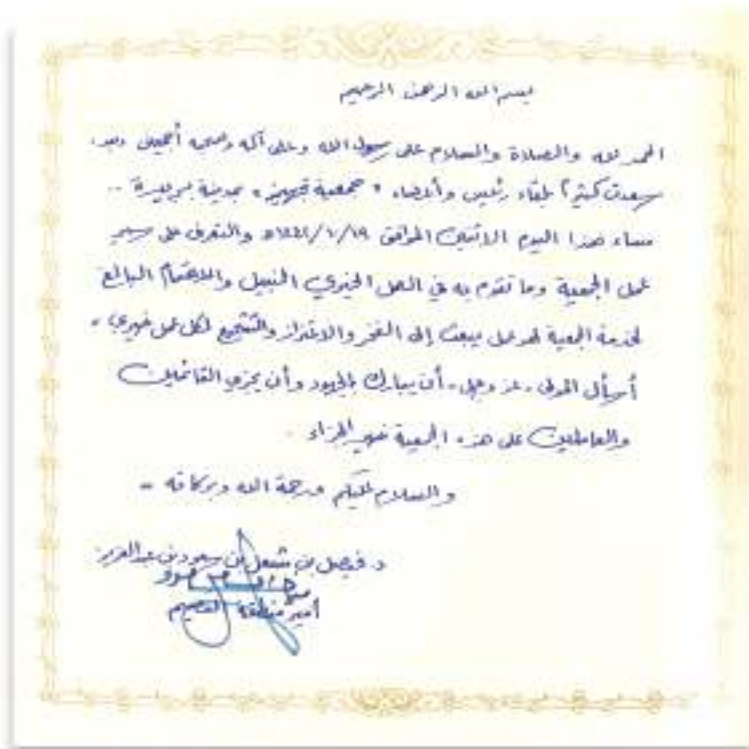 بسم الله الرحمن الرحيم
الحمد لله والصلاة والسلام على رسول الله وعلى آله وصحبه أجمعين وبعد.
سعدت كثيراً بلقاء رئيس وأعضاء "جمعية تجهيز" بمدينة بريدة ..
مساء هذا اليوم الاثنين الموافق ١٤٤١/٦/١٩هـ والتعرف على سير
عمل الجمعية وما تقوم به في العمل الخيري النبيل والاهتمام البالغ
لخدمة الجمعية لهو عمل يبعث إلى الفخر والاعتزاز والتشجيع لكل عمل خيري .
أسأل المولى . عز وجل . أن يبارك بالجهود وأن يجزي القائمين
والعاملين على هذه الجمعية خير الجزاء .
والسلام عليكم ورحمة الله وبركاته -
د. فيصل بن مشعل بن سعود بن عبدالعزيز
أمير منطقة القصيم